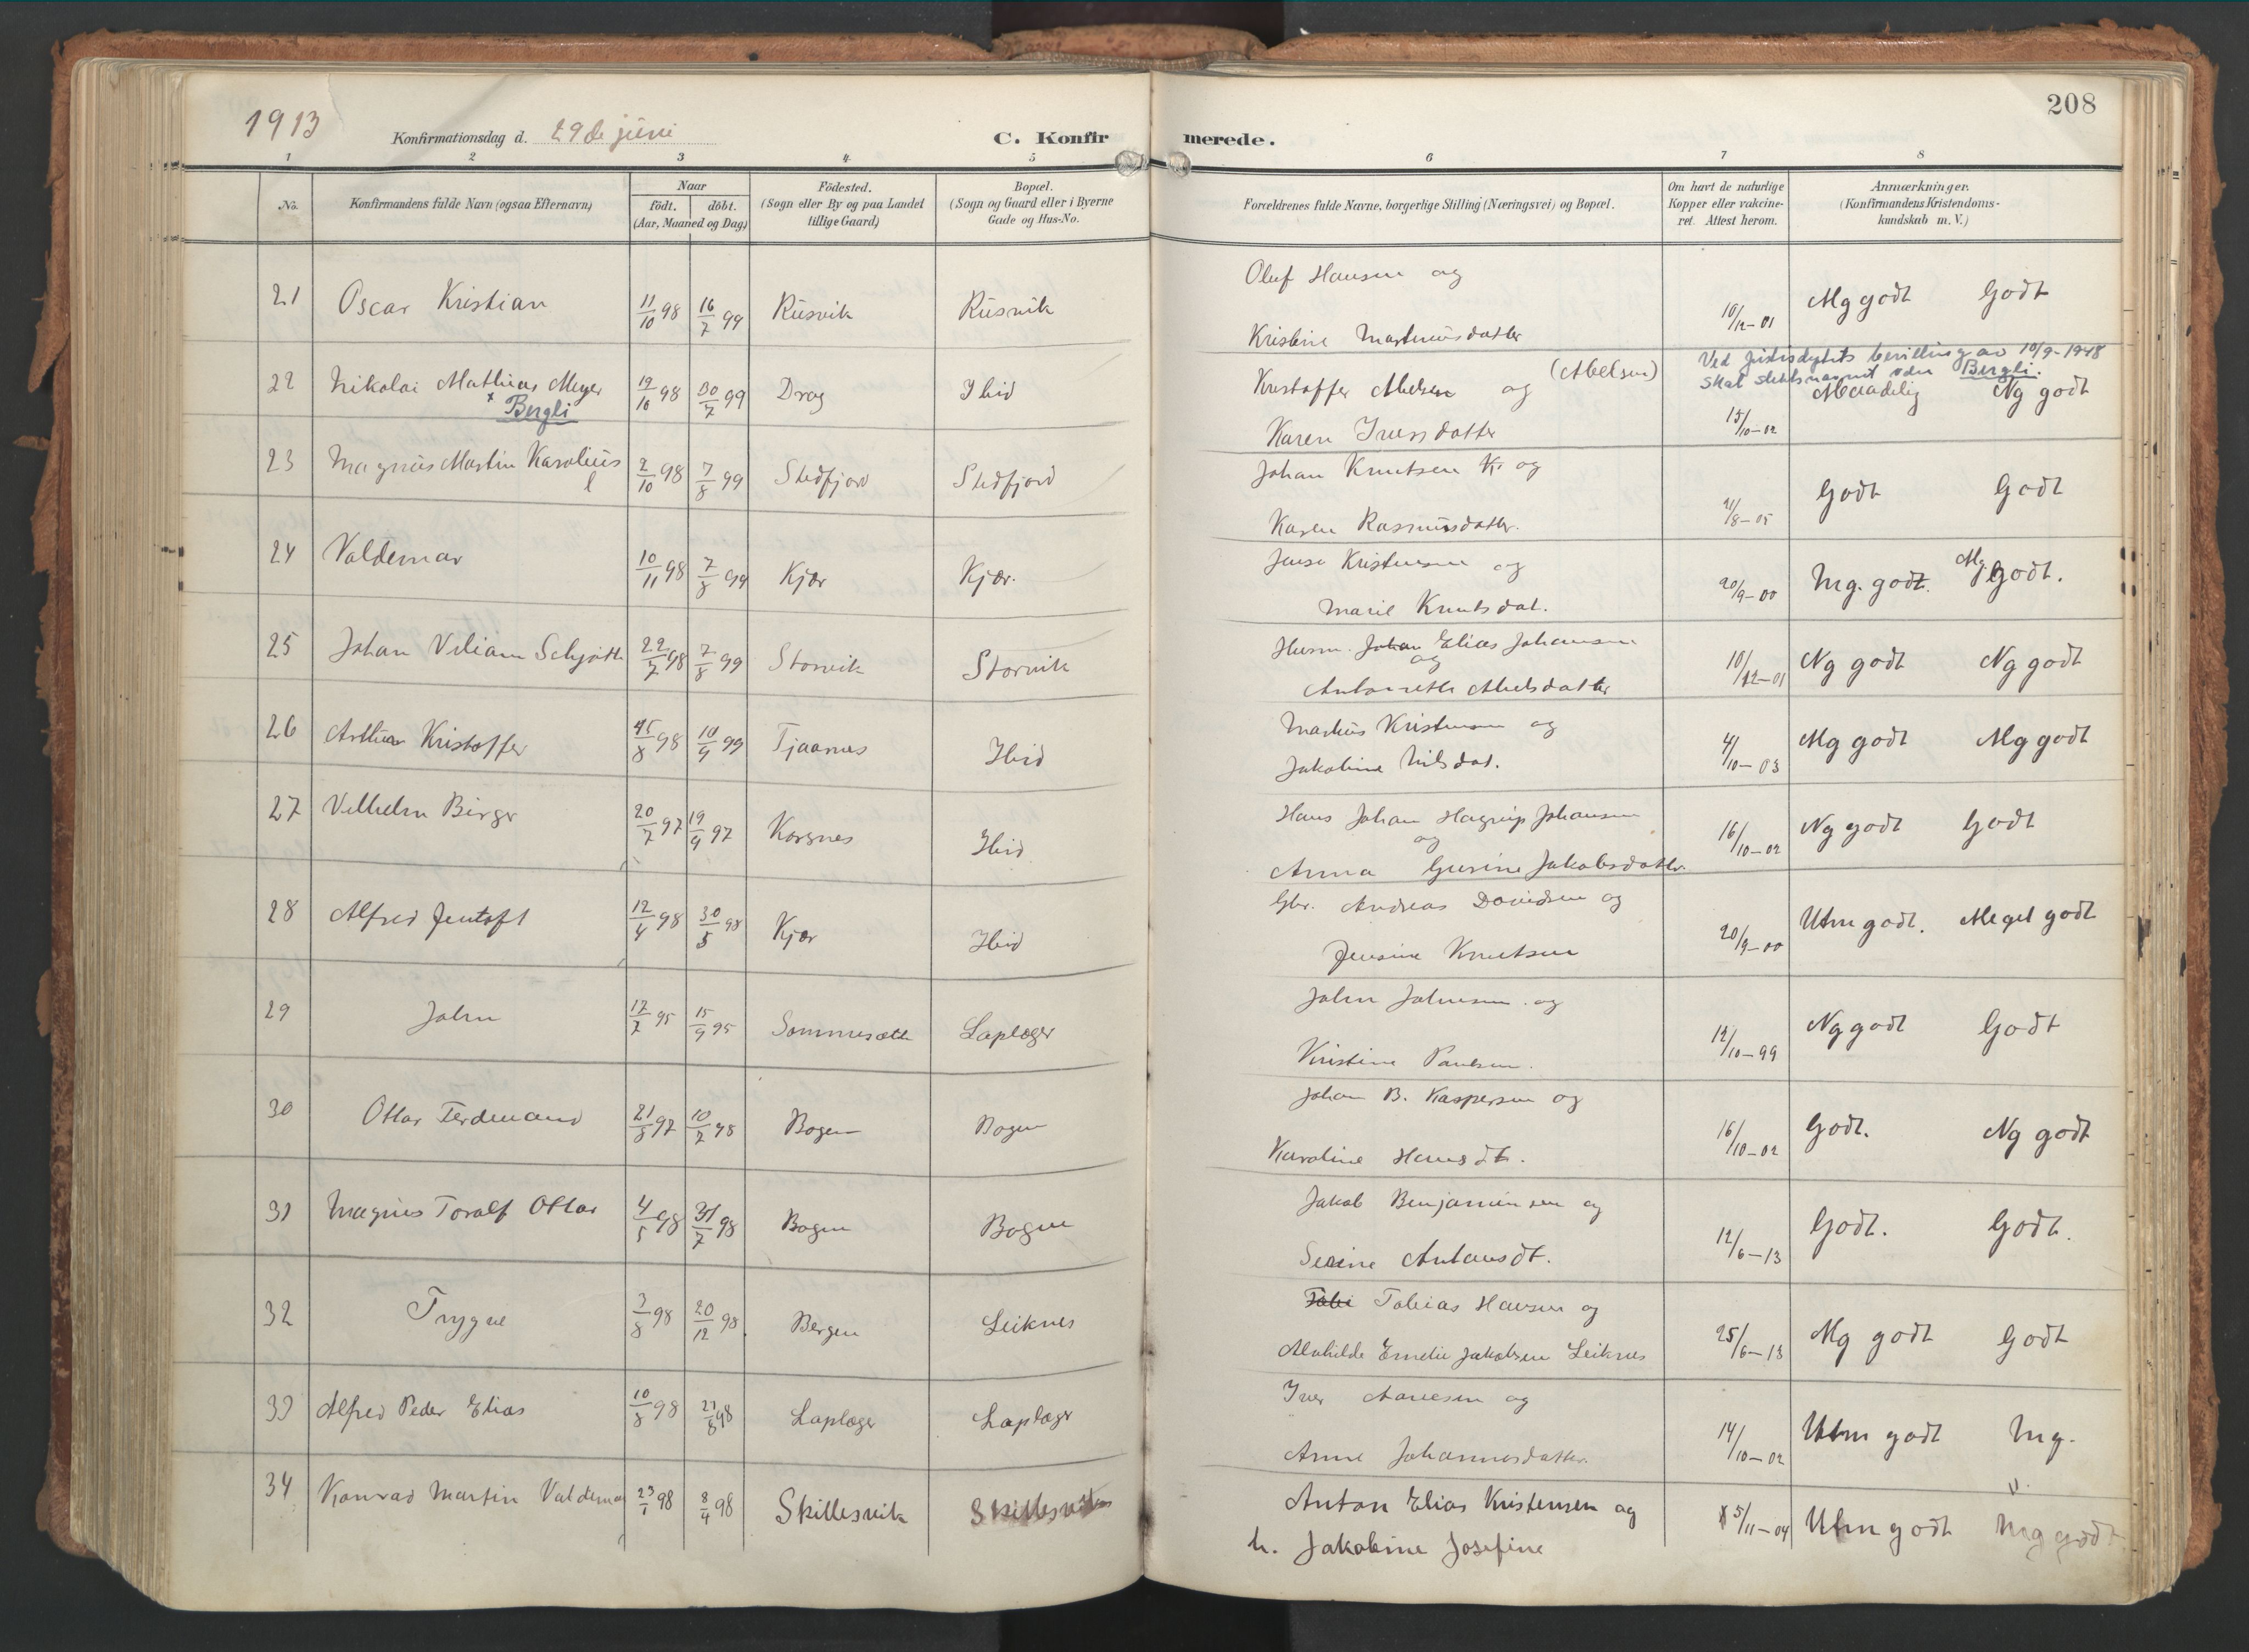 1913
Konfirmationsdag d. 29de juni
C. Konfirmerede.
208
1 2 3 4 5 6 7 8
No.
Konfirmandens fulde Navn (ogsaa Efternavn)
Naar
födt. döbt.
(Aar, Maaned og Dag)
Födested.
(Sogn eller By og paa Landet
tillige Gaard)
Bopæl.
(Sogn og Gaard eller i Byerne
Gade og Hus-No.
Forældrenes fulde Navne, borgerlige Stilling (Næringsvei) og Bopæl.
Om havt de naturlige
Kopper eller vakcine-
ret. Attest herom.
Anmærkninger.
(Konfirmandens Kristendoms-
kundskab m. V.)
21 Oscar Kristian 11/10 98 16/7 99 Rusvik Rusvik
Oluf Hansen og
Kristine Martinusdatter
10/12–01 Mg godt Godt
22 Nikolai Mathias Meyer 19/10 98 30/7 99 Drag Ibid
x Bergli
Kristoffer Abelsen og (Abelsen)
Karen Iversdatter
Ved justisdeptets bevilling av 10/9-1948
skal slektsnavnet være Bergli.
15/10–02 Maadelig Ng godt
23 Magnus Martin Karolius 2/10 98 7/8 99 Stedfjord Stedfjord
Johan Knutsen K. og
Karen Rasmusdatter.
21/8–05 Godt Godt
24 Valdemar 10/11 98 7/8 99 Kjær Kjær.
Jens Kristensen og
Marie Knutsdat.
20/9–00 Mg. godt. Mg godt.
25 Johan Viliam Schjøtt 22/7 98 7/8 99 Storvik Storvik
Husm. Johan Elias Johansen
og
Antonette Abelsdatter
10/12–01 Ng godt Ng godt
26 Arthur Kristoffer 15/8 98 10/9 99 Tjaarnes Ibid
Markus Kristensen og
Jakobine Nilsdat.
4/10–03 Mg godt Mg godt
27 Vilhelm Birger 20/7 97 19/9 97 Korsnes Ibid
Hans Johan Hagrup Johansen
og
Anna Gurine Jakobsdatter.
16/10–02 Ng godt Godt
28 Alfred Jentoft 12/4 98 30/5 98 Kjær Ibid
Gbr. Andreas Davidsen og
Jensine Knutsen
20/9–00 Utm godt. Meget godt
29 John 17/7 95 15/9 95 Sommersætt Laplæger
John Johnsen. og
Kristine Paulsen.
12/10–99 Ng godt Godt
30 Ottar Ferdenand 21/8 97 10/7 98 Bogen Bogen
Johan B. Kaspersen og
Karoline Hansdt.
16/10–02 Godt. Ng godt
31 Magnus Toralf Ottar 4/5 98 31/7 98 Bogen Bogen
Jakob Benjaminsen og
Serine Antonsdt.
12/6–13 Godt. Godt.
32 Trygve 3/8 98 20/12 98. Bergen Leiknes
Tobi Tobias Hansen og
Mathilde Emelie Jakobsen Leiknes
25/6–13 Mg godt Godt
33 Alfred Peder Elias 10/8 98 21/8 98 Laplæger Laplæger
Iver Aanesen og
Anne Johannesdatter.
14/10–02 Utm godt Mg.
34 Konrad Martin Valdemar 23/1 98 8/4 98 Skillesvik Skillesvik
Anton Elias Kristensen og
h. Jakobine Josefine
5/11–04 Utm godt Mg godt